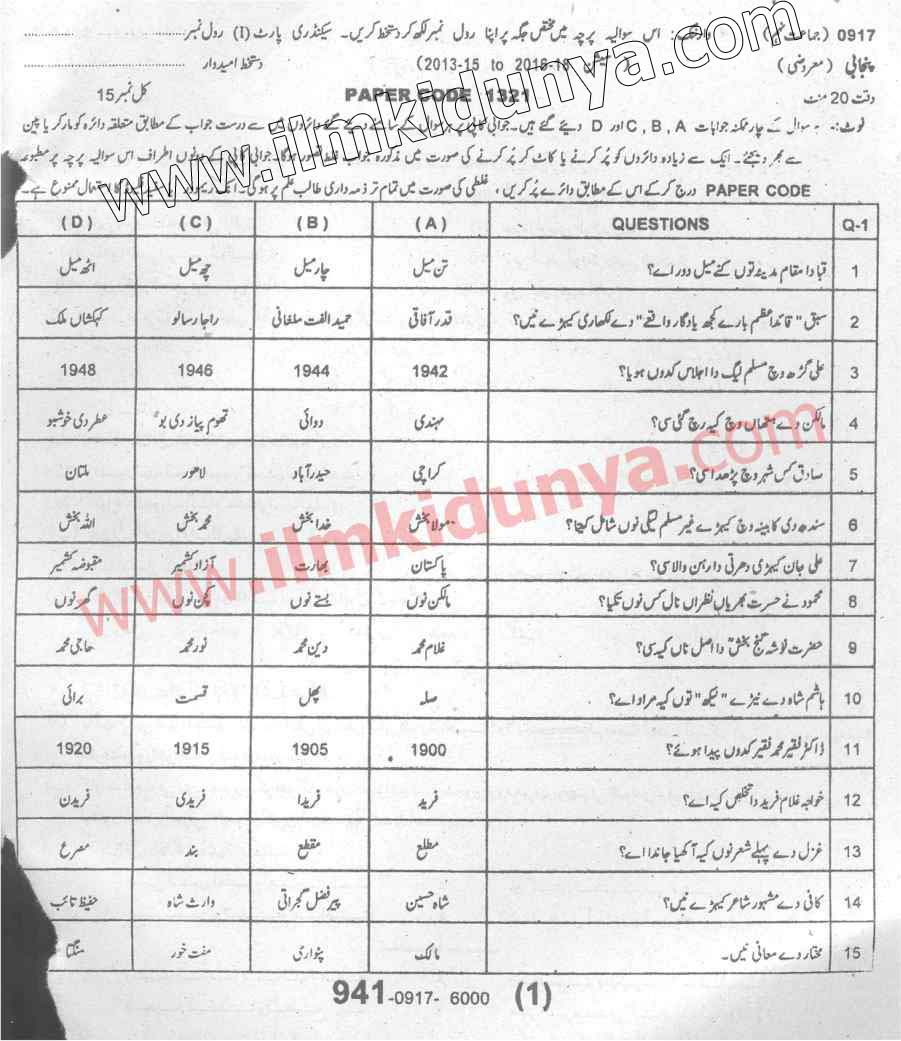 0917 (جماعت نہم) وارننگ: اس سوالیہ پرچہ میں مختص جگہ پر اپنا رول نمبر لکھ کر دستخط کریں۔ سیکنڈری پارٹ (I) رول نمبر
پنجابی (معروضی) (سیشن 2013-15 to 2016-18) دستخط امیدوار
وقت 20 منٹ PAPER CODE 1321 کل نمبر 15
نوٹ:۔ ہر سوال کے چار ممکنہ جوابات A ,B ,C اور D دیئے گئے ہیں۔ جوابی کاپی پر ہر سوال کے سامنے دیئے گئے دائروں میں سے درست جواب کے مطابق متعلقہ دائرہ کو مارکر یا پین
سے بھر دیجئے۔ ایک سے زیادہ دائروں کو پُر کرنے یا کاٹ کر پُر کرنے کی صورت میں مذکورہ جواب غلط تصور ہوگا۔ جوابی کاپی کے دونوں اطراف اس سوالیہ پرچہ پر مطبوعہ
PAPER CODE درج کر کے اس کے مطابق دائرے پُر کریں، غلطی کی صورت میں تمام تر ذمہ داری طالب علم پر ہوگی۔ استعمال ممنوع ہے۔
Q-1 QUESTIONS (A) (B) (C) (D)
1 قبا دا مقام مدینہ توں کنے میل دور اے؟ تن میل چار میل چھ میل اٹھ میل
2 سبق "قائداعظم بارے کجھ یادگار واقعے" دے لکھاری کیہڑے نیں؟ قدر آفاقی حمید الفت ملغانی راجا رسالو کہکشاں ملک
3 علی گڑھ وچ مسلم لیگ دا اجلاس کدوں ہویا؟ 1942 1944 1946 1948
4 مالکن دے ہتھاں وچ کیہ رچ گئی سی؟ مہندی دوائی تھوم پیاز دی بو عطر دی خوشبو
5 صادق کس شہر وچ پڑھدا سی؟ کراچی حیدر آباد لاہور ملتان
6 سندھ دی کابینہ وچ کیہڑے غیر مسلم لیگی نوں شامل کیتا؟ مولا بخش خدا بخش محمد بخش اللہ بخش
7 علی جان کیہڑی دھرتی دا رہن والا سی؟ پاکستان بھارت آزاد کشمیر مقبوضہ کشمیر
8 محمود نے حسرت بھریاں نظراں نال کس نوں تکیا؟ مالکن نوں بستے نوں کچن نوں گھر نوں
9 حضرت نوشہ گنج بخشؒ دا اصل ناں کیہ سی؟ غلام محمد دین محمد نور محمد حاجی محمد
10 ہاشم شاہ دے نیڑے "لیکھ" توں کیہ مراد اے؟ صلہ پھل قسمت برائی
11 ڈاکٹر فقیر محمد فقیر کدوں پیدا ہوئے؟ 1900 1905 1915 1920
12 خواجہ غلام فرید دا تخلص کیہ اے؟ فرید فریدا فریدی فریدن
13 غزل دے پہلے شعر نوں کیہ آکھیا جاندا اے؟ مطلع مقطع بند مصرع
14 کافی دے مشہور شاعر کیہڑے نیں؟ شاہ حسین پیر فضل گجراتی وارث شاہ حفیظ تائب
15 مختار دے معانی نیں۔ مالک پٹواری مفت خور منگتا
941-0917- 6000 (1)
www.ilmkidunya.com
www.ilmkidunya.com